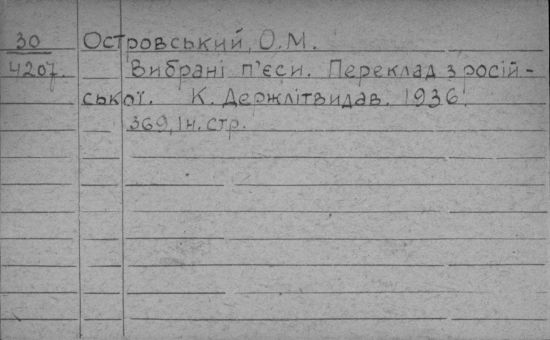 30 Островський, О.М.
4207. Вибрані п'єси. Переклад з росій-
ської. К. Держлітвидав. 1936.
369, 1н. стр.